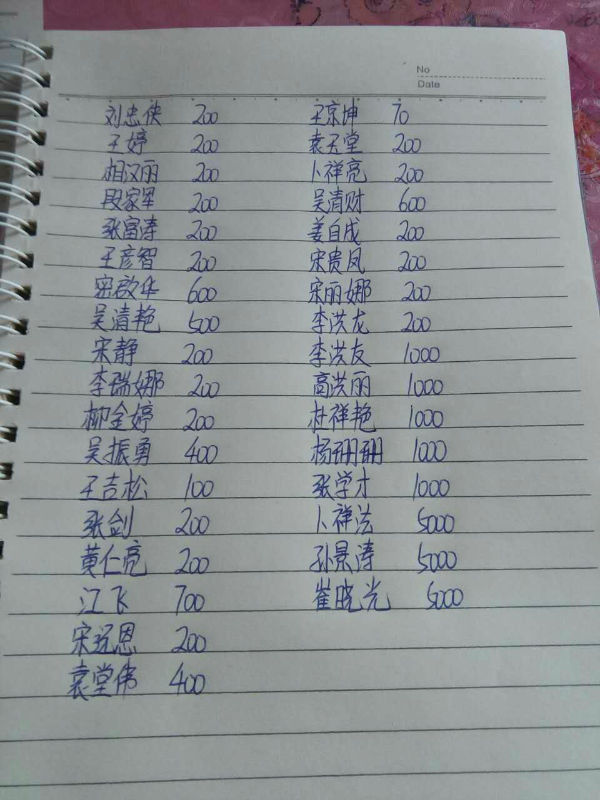 No
Date
刘忠侠 200
王婷 200
相汉丽 200
段家军 200
张富涛 200
王彦智 200
密啟华 600
吴清艳 500
宋静 200
李瑞娜 200
柳金婷 200
吴振勇 400
王吉松 100
张剑 200
黄仁亮 200
江飞 700
宋说恩 200
袁堂伟 400
王京坤 70
袁玉堂 200
卜祥亮 200
吴清财 600
姜自成 200
宋贵凤 200
宋丽娜 200
李洪龙 200
李洪友 1000
高洪丽 1000
杜祥艳 1000
杨珊珊 1000
张学才 1000
卜祥浩 5000
孙景涛 5000
崔晓光 5000